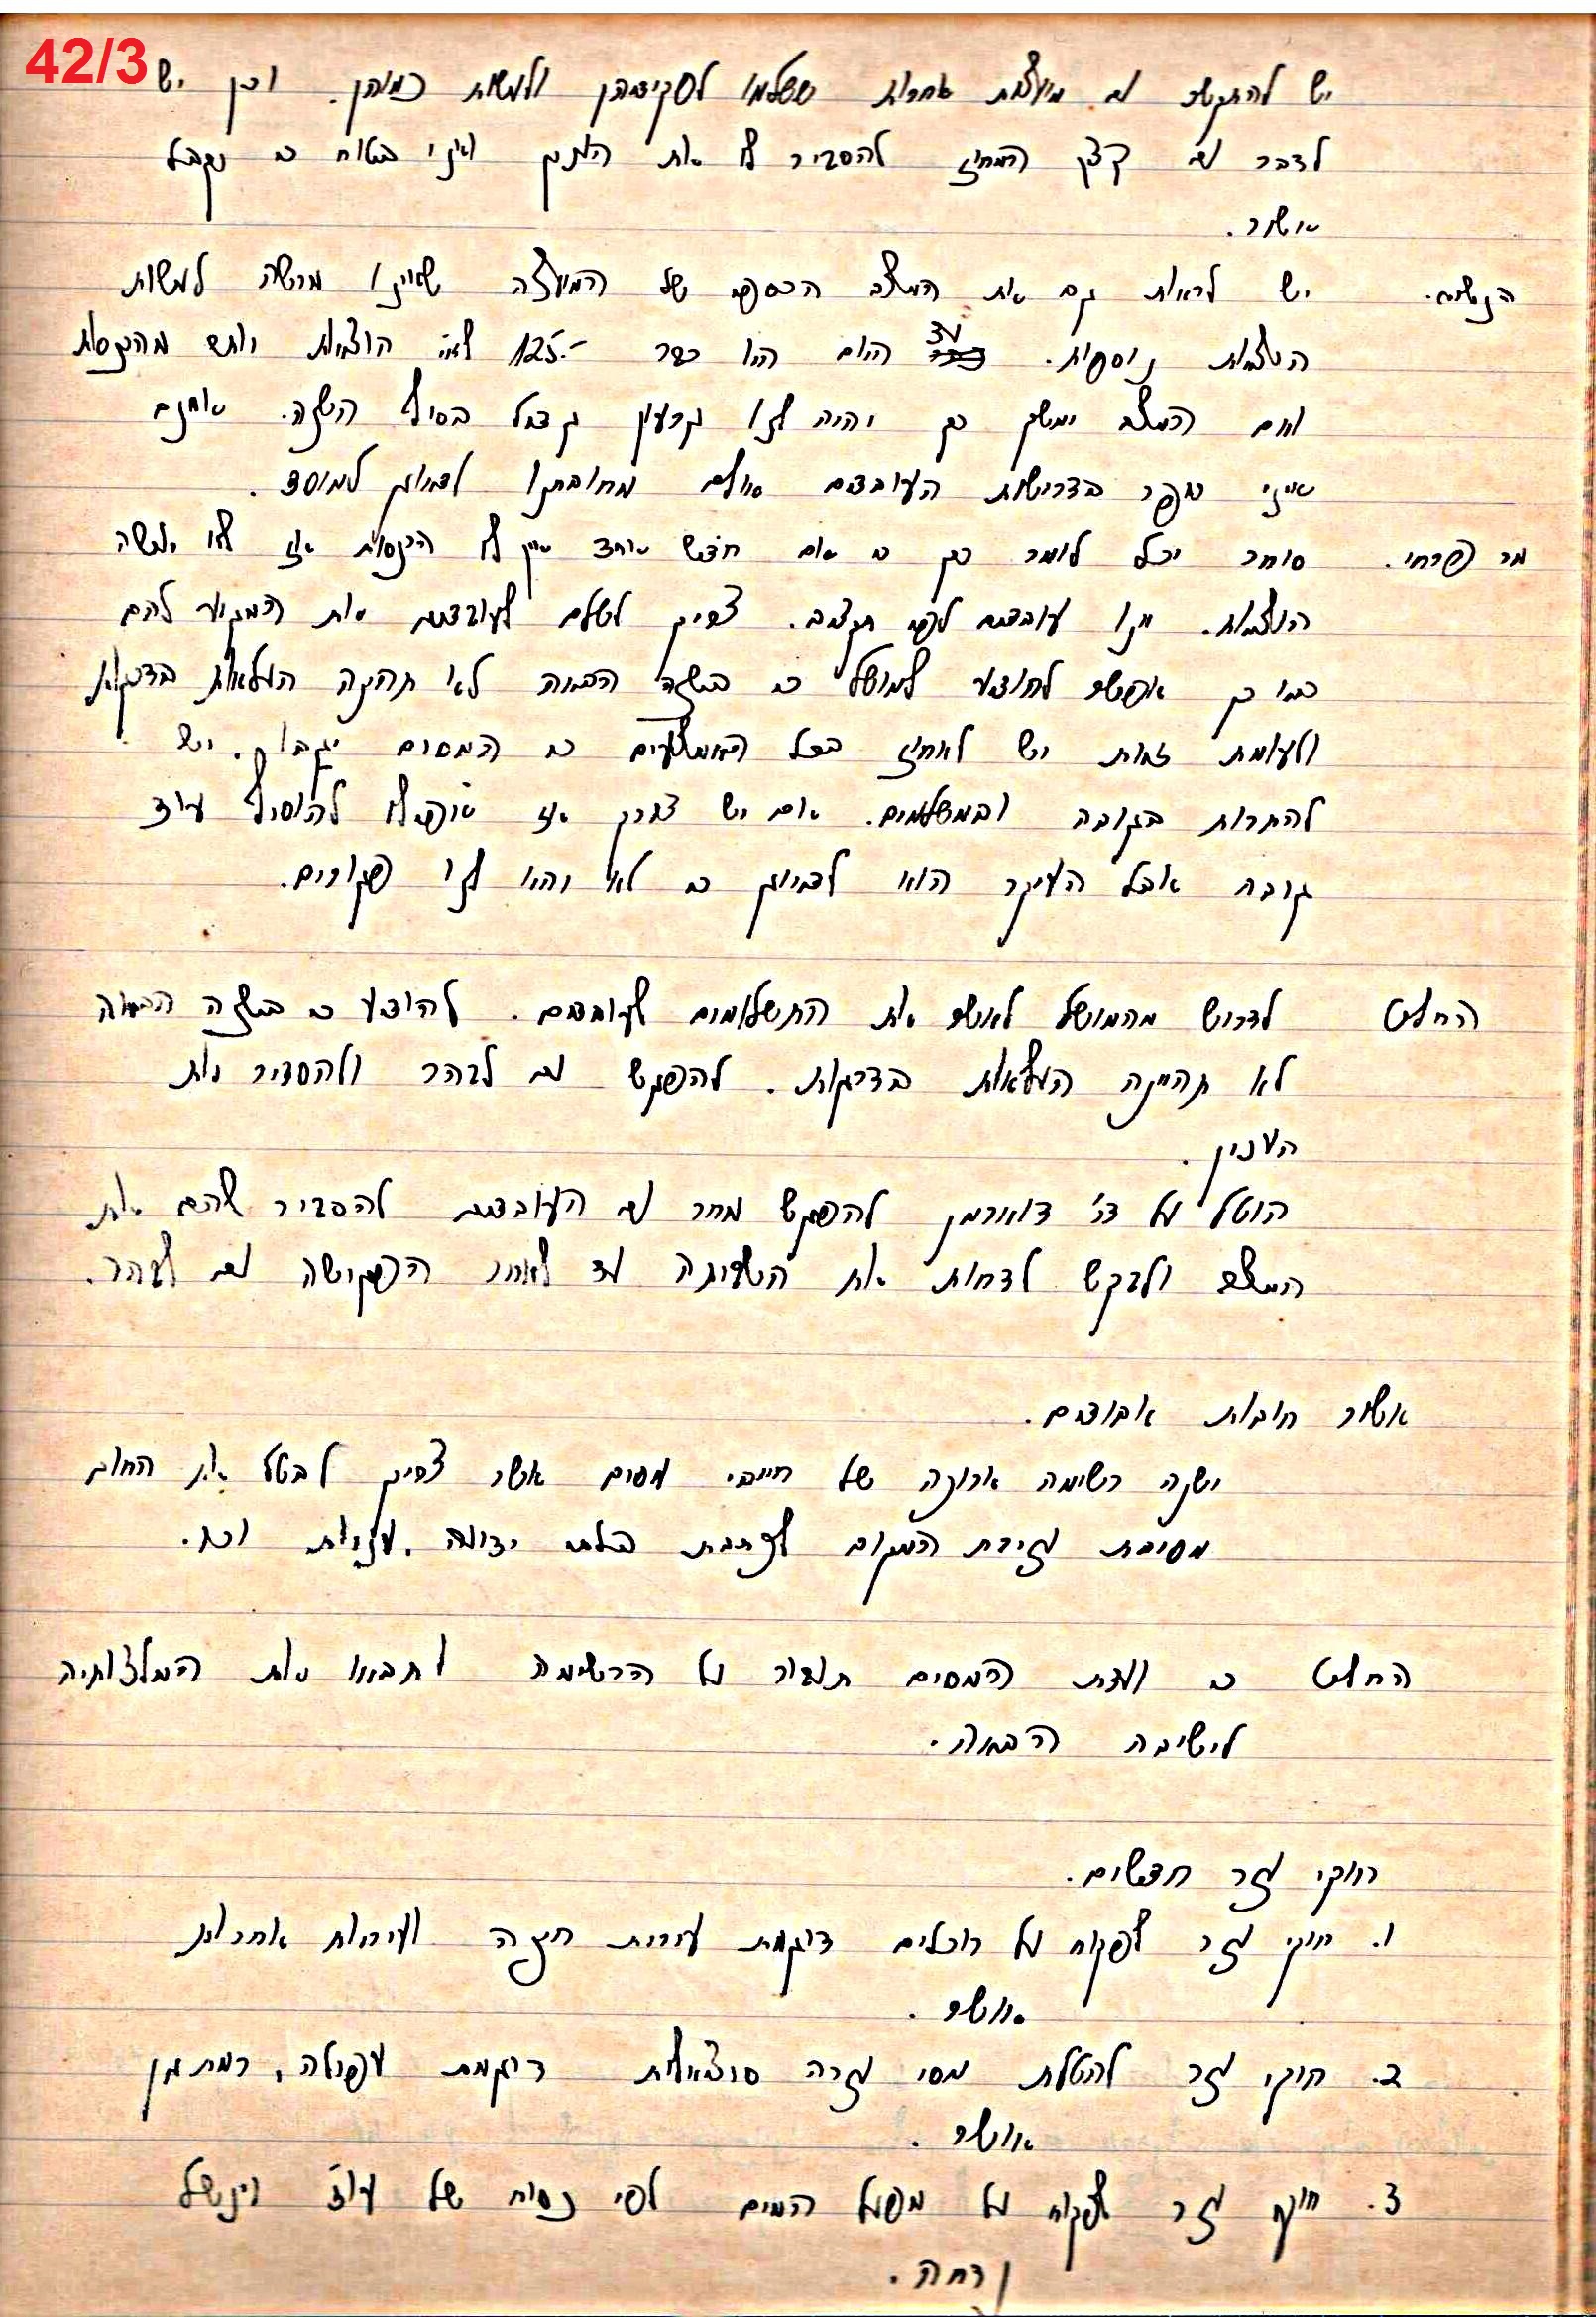 42/3
יש להתקשר עם מועצות אחרות ששלמו לפקידיהן ולעשות כמוהן. וכן יש
לדבר עם קצין המחוז להסביר לו את הענין ואני בטוח כי נקבל
אישור.
הנשיא. יש לראות גם את המצב הכספי של המועצה שאיננו מרשה לעשות
הוצאות נוספות. עד היום היו כבר -.125 ל"י הוצאות יותר מהכנסות
ואם המצב ימשך כך יהיה לנו גרעון גדול בסוף השנה. אמנם
אינני כופר בדרישות העובדים אולם מחובתנו לדאוג למוסד.
מר פרחי. סוחר יכל לומר כך כי אם חודש אחד אין לו הכנסות אז לא יעשה
הוצאות. אנו עובדים לפי תקציב. צריך לשלם לעובדים את המגיע להם
כמו כן אפשר להודיע למושל כי בשנה הבאה לא תהינה העלאות בדרגות
ולעומת זאת יש לאחוז בכל האמצעים כי המסים יגבו. יש
להתרות בגובה ובמשלמים. אם יש צורך אז אפילו להוסיף עוד
גובה אבל העיקר הוא לדאוג כי לא יהיו לנו פגורים.
החלט לדרוש מהמושל לאשר את התשלומים לעובדים. להודיע כי בשנה הבאה
לא תהיינה העלאות בדרגות. להפגש עם לבהר ולהסדיר את
הענין.
הוטל על ה' דוארמן להפגש מחר עם העובדים להסביר להם את
המצב ולבקש לדחות את השביתה עד לאחר הפגישה עם לבהר.
אשור חובות אבודים.
ישנה רשימה ארוכה של חייבי מסים אשר צריך לבטל את החוב
מסיבת עזיבת המקום לכתובת בלתי ידועה, עניות וכו.
החלט כי ועדת המסים תעבור על הרשימה ותביא את המלצותיה
לישיבה הבאה.
חוקי עזר חדשים.
1. חוקי עזר לפקוח על רוכלים דוגמת עירית חיפה ועיריות אחרות
אושר.
2. חוקי עזר להטלת מסי עזרה סוציאלית דוגמת עפולה, רמת גן
אושר.
3. חוק עזר לפקוח על מפעל המים לפי נסוח של עו"ד וינשל
נדחה.